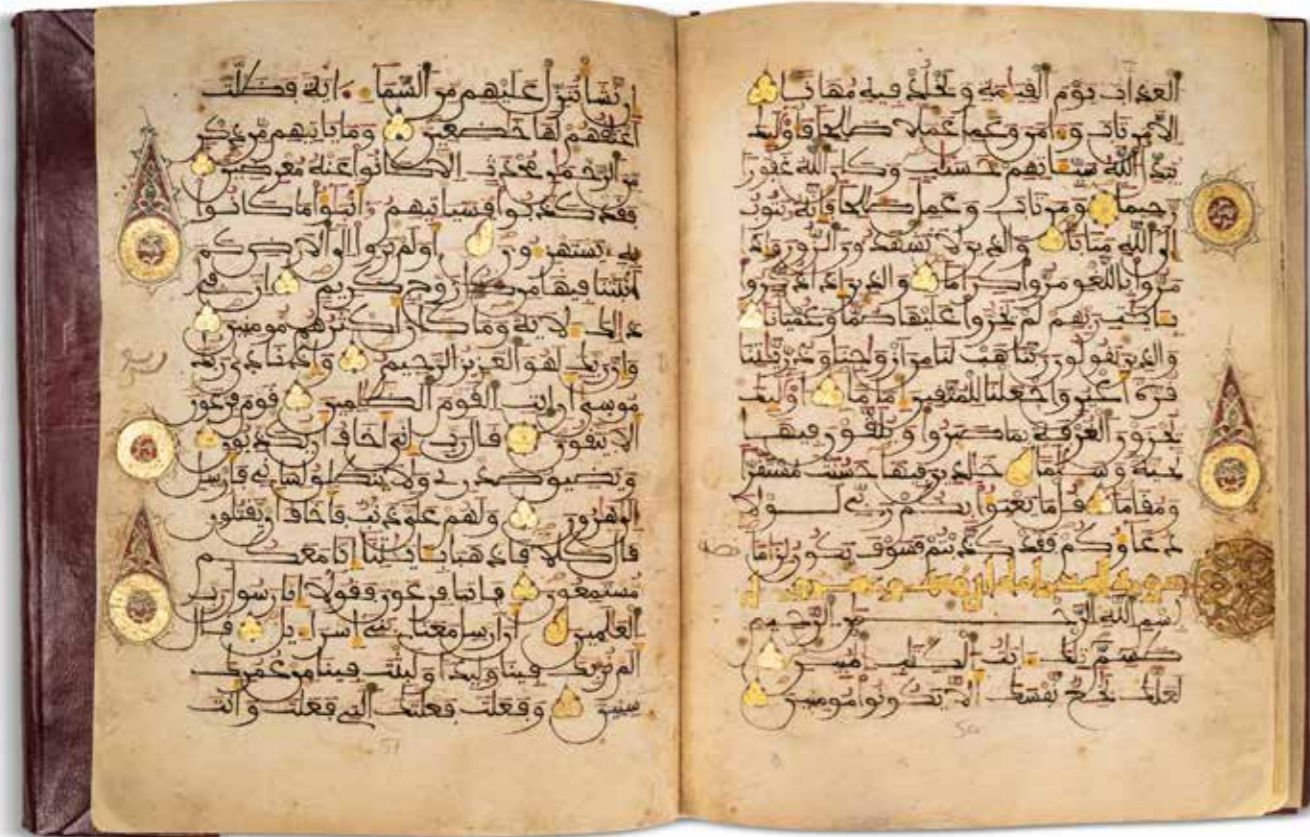 العذاب يوم القيمة ويخلد فيه مهانا
الا من تاب وءامن وعمل عملا صالحا فأوليك
يبدل الله سيئاتهم حسنات وكان الله غفورا
رحيما ومن تاب وعمل صالحا فإنه يتوب
إلى الله متابا والذين لا يشهدون الزور وإذا
مروا باللغو مروا كراما والذين إذا ذكروا
بئايت ربهم لم يخروا عليها صما وعميانا
والذين يقولون ربنا هب لنا من ازواجنا وذريتنا
قرة أعين واجعلنا للمتقين إماما أوليك
يجزون الغرفة بما صبروا ويلقون فيها
تحية وسلما خالدين فيها حسنت مستقرا
ومقاما قل ما يعبؤا بكم ربي لولا
دعاؤكم فقد كذبتم فسوف يكون لزاما
سورة الشعراء مايتان وعشرون
بسم الله الرحمن الرحيم
طسم تلك ءايت الكتب المبين
لعلك بخع نفسك ألا يكونوا مومنين
50
إن نشأ ننزل عليهم من السماء ءاية فظلت
أعنقهم لها خضعين وما ياتيهم من ذكر
من الرحمن محدث إلا كانوا عنه معرضين
فقد كذبوا فسياتيهم أنبؤا ما كانوا
به يستهزءون أولم يروا إلى الارض كم
أنبتنا فيها من كل زوج كريم إن في
ذلك لأية وما كان أكثرهم مومنين
وإن ربك لهو العزيز الرحيم وإذ نادى ربك
موسى أن ايت القوم الظلمين قوم فرعون
ألا يتقون قال رب إني أخاف أن يكذبون
ويضيق صدري ولا ينطلق لساني فأرسل
إلى هرون ولهم علي ذنب فأخاف أن يقتلون
قال كلا فاذهبا بئايتنا إنا معكم
مستمعون فاتيا فرعون فقولا إنا رسول رب
العالمين أن ارسل معنا بني إسراءيل قال
ألم نربك فينا وليدا ولبثت فينا من عمرك
سنين وفعلت فعلتك التي فعلت وأنت
51